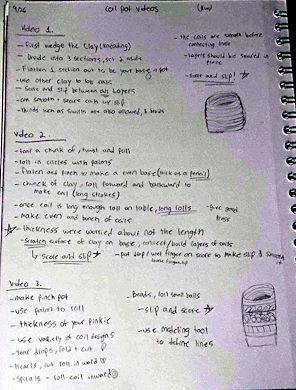 9/26 coil pot videos
Video 1.
- First wedge the clay (kneading)
- Divide into 3 sections, set 2 aside
- Flatten 1 section out to be your base
- use other clay to
- Score and slip between all layers
- can smooth + secure coils w/ slip
- Things such as swirls are also allowed, & braids
- the coils are smooth before connecting them
- Layers should be secured in place
- Score and slip!
Video 2.
- tear a chunk of, twist and pull
- roll in circles with palms
- flatten and pinch to make a even base (thick as a pencil)
- chunck of clay, roll forward and backward
to make coil (long strokes)
- once coil is long enough roll on table, long rolls
- make even and bunch of coils
- thickness we're worried about not the length
- scratch surface of clay on base, connect / build layers of coils
↳ score and slip
- put drop / wet finger on score to make slip &
Video 3.
- make pinch pot
- use palm to roll
- thickness of your pinkie
- use variety of coil designs
- tear drops, fold + cut
- Hearts, cut roll inward
- spirals - roll coil inward
- beads, roll small balls
- slip and score
- use modeling tool
to define lines